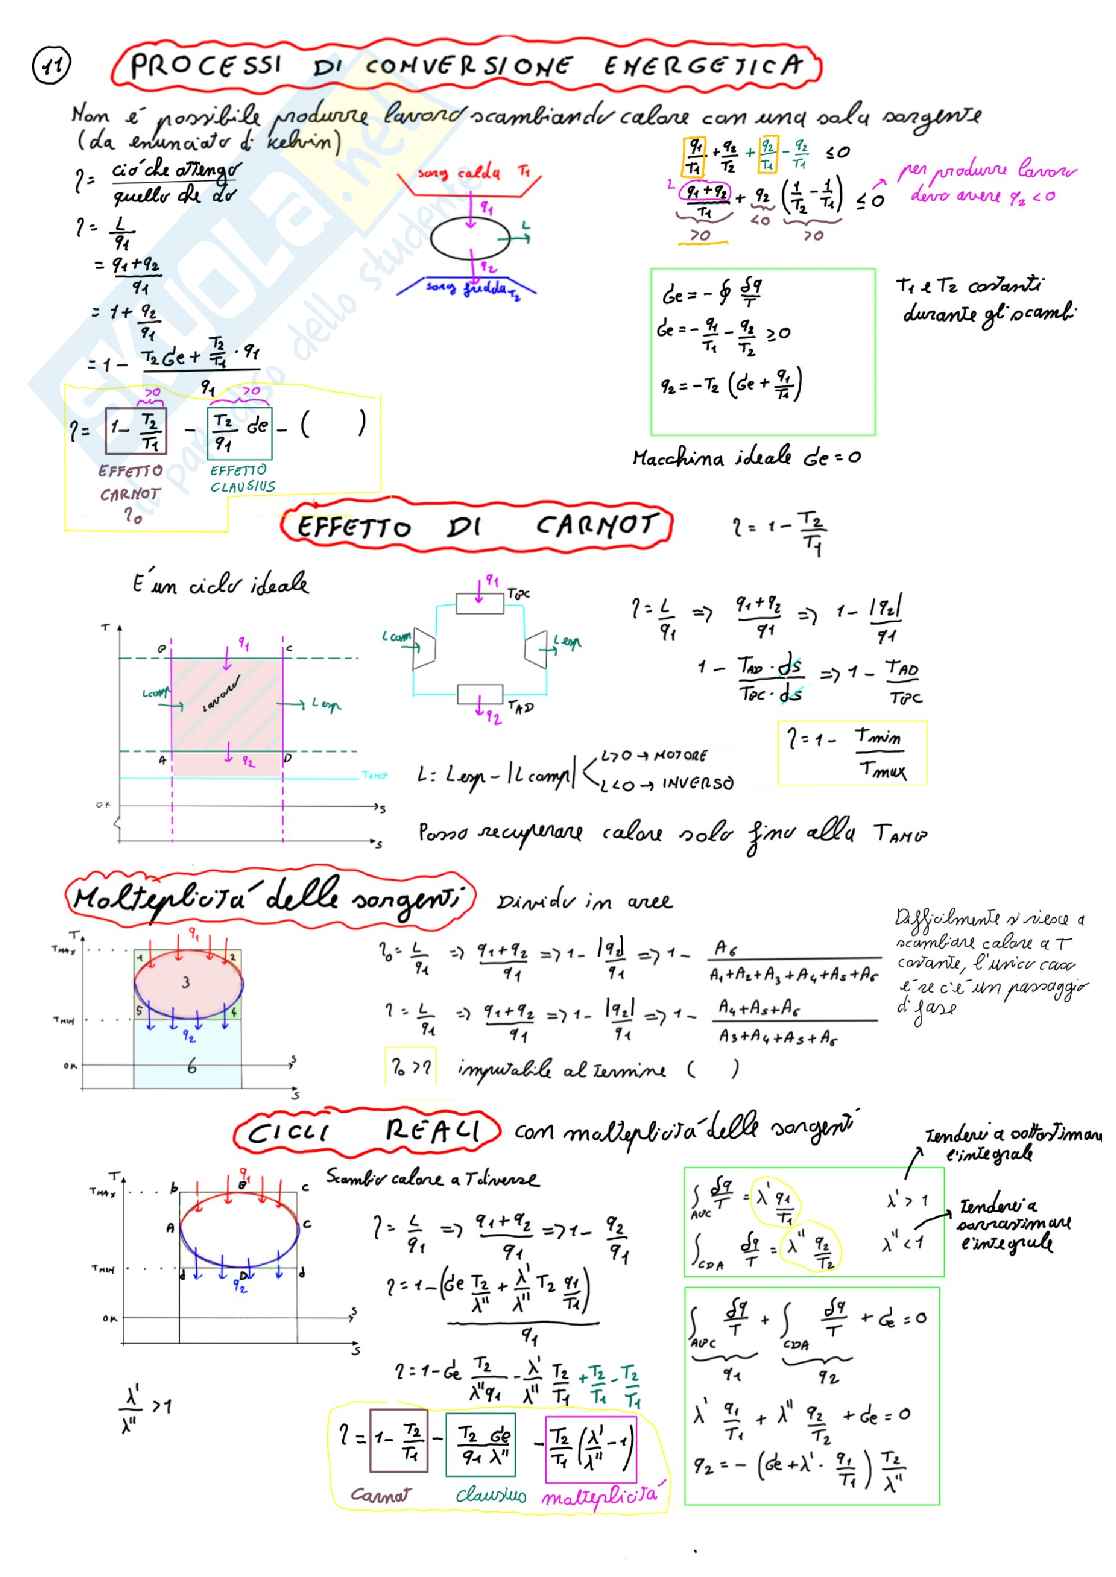 11
PROCESSI DI CONVERSIONE ENERGETICA
Non é possibile produrre lavoro scambiando calore con una sola sorgente
(da enunciato di Kelvin)
η = ciò che ottengo / quello che do
η = L / q1
= q1+q2 / q1
= 1 + q2 / q1
= 1 - T2 σe + T2/T1 · q1 / q1
sorg calda T1
q1
L
q2
sorg fredda T2
q1/T1 + q2/T2 + q2/T1 - q2/T1 ≤ 0
q1+q2 / T1 + q2 (1/T2 - 1/T1) ≤ 0
>0 <0 >0
per produrre lavoro
devo avere q2 < 0
σe = - ∮ δq/T
σe = - q1/T1 - q2/T2 ≥ 0
q2 = - T2 (σe + q1/T1)
T1 e T2 costanti
durante gli scambi
Macchina ideale σe = 0
>0 >0
η = 1 - T2/T1 - T2/q1 σe - ( )
EFFETTO CARNOT η0
EFFETTO CLAUSIUS
SKUOLA.net
EFFETTO DI CARNOT
η = 1 - T2/T1
E' un ciclo ideale
T
B q1 C
Lcomp lavoro Lesp
A q2 D
TAMB
0K S
S
q1 TBC
Lcomp Lesp
q2 TAD
η = L/q1 => q1+q2 / q1 => 1 - |q2|/q1
1 - TAD · ds / TBC · ds => 1 - TAD / TBC
η = 1 - Tmin / Tmax
L = Lesp - |Lcomp|
L>0 → MOTORE
L<0 → INVERSO
Posso recuperare calore solo fino alla TAMB
Molteplicitá delle sorgenti
Divido in aree
T
TMAX q1
1 2
3
5 4
TMIN
q2
0K 6 S
S
η0 = L/q1 => q1+q2 / q1 => 1 - |q2|/q1 => 1 - A6 / A1+A2+A3+A4+A5+A6
η = L/q1 => q1+q2 / q1 => 1 - |q2|/q1 => 1 - A4+A5+A6 / A3+A4+A5+A6
η0 > η imputabile al termine ( )
Difficilmente si riesce a
scambiare calore a T
costante, l'unico caso
é se c'é un passaggio
di fase
CICLI REALI con molteplicitá delle sorgenti
T
TMAX b q1 B c
A C
TMIN d D d
q2
0K S
S
λ'/λ'' > 1
Scambio calore a T diverse
η = L/q1 => q1+q2 / q1 => 1 - q2/q1
η = 1 - (σe T2/λ'' + λ'/λ'' T2 q1/T1) / q1
η = 1 - σe T2/λ''q1 - λ'/λ'' T2/T1 + T2/T1 - T2/T1
η = 1 - T2/T1 - T2 σe / q1 λ'' - T2/T1 (λ'/λ'' - 1)
Carnot clausius molteplicitá
Tenderei a sottostimare
l'integrale
∫ABC δq/T = λ' q1/T1 λ' > 1
∫CDA δq/T = λ'' q2/T2 λ'' < 1
Tenderei a
sovrastimare
l'integrale
∫ABC δq/T + ∫CDA δq/T + σe = 0
q1 q2
λ' q1/T1 + λ'' q2/T2 + σe = 0
q2 = - (σe + λ' · q1/T1) T2/λ''